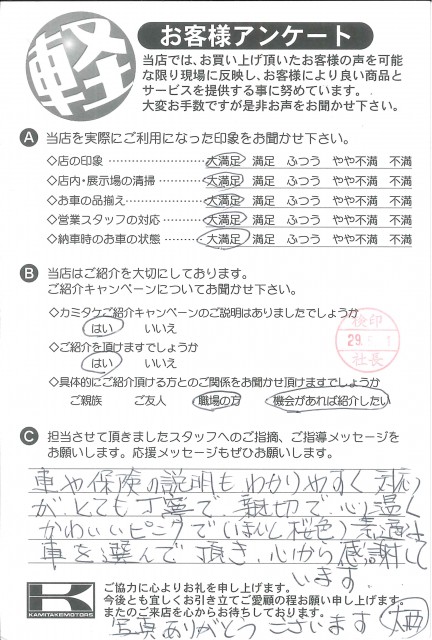 軽
お客様アンケート
当店では、お買い上げ頂いたお客様の声を可能
な限り現場に反映し、お客様により良い商品と
サービスを提供する事に努めています。
大変お手数ですが是非お声をお聞かせ下さい。
A 当店を実際にご利用になった印象をお聞かせ下さい。
◇店の印象 大満足 満足 ふつう やや不満 不満
◇店内・展示場の清掃 大満足 満足 ふつう やや不満 不満
◇お車の品揃え 大満足 満足 ふつう やや不満 不満
◇営業スタッフの対応 大満足 満足 ふつう やや不満 不満
◇納車時のお車の状態 大満足 満足 ふつう やや不満 不満
B 当店はご紹介を大切にしております。
ご紹介キャンペーンについてお聞かせ下さい。
◇カミタケご紹介キャンペーンのご説明はありましたでしょうか
はい いいえ
◇ご紹介を頂けますでしょうか
はい いいえ
検印
29
社長
◇具体的にご紹介頂ける方とのご関係をお聞かせ頂けますでしょうか
ご親族 ご友人 職場の方 機会があれば紹介したい
C 担当させて頂きましたスタッフへのご指摘、ご指導メッセージを
お願いします。応援メッセージもぜひお願いします。
車や保険の説明もわかりやすく対応
が、とても丁寧で親切で心温く
かわいいピンクで(ほんと桜色)素適な
車を選んで頂き心から感謝して
います。
KAMITAKEMOTORS
ご協力に心よりお礼を申し上げます。
今後とも宜しくお引き立てご愛顧の程お願い申し上げます。
またのご来店を心からお待ちしております。
写真ありがとうございます